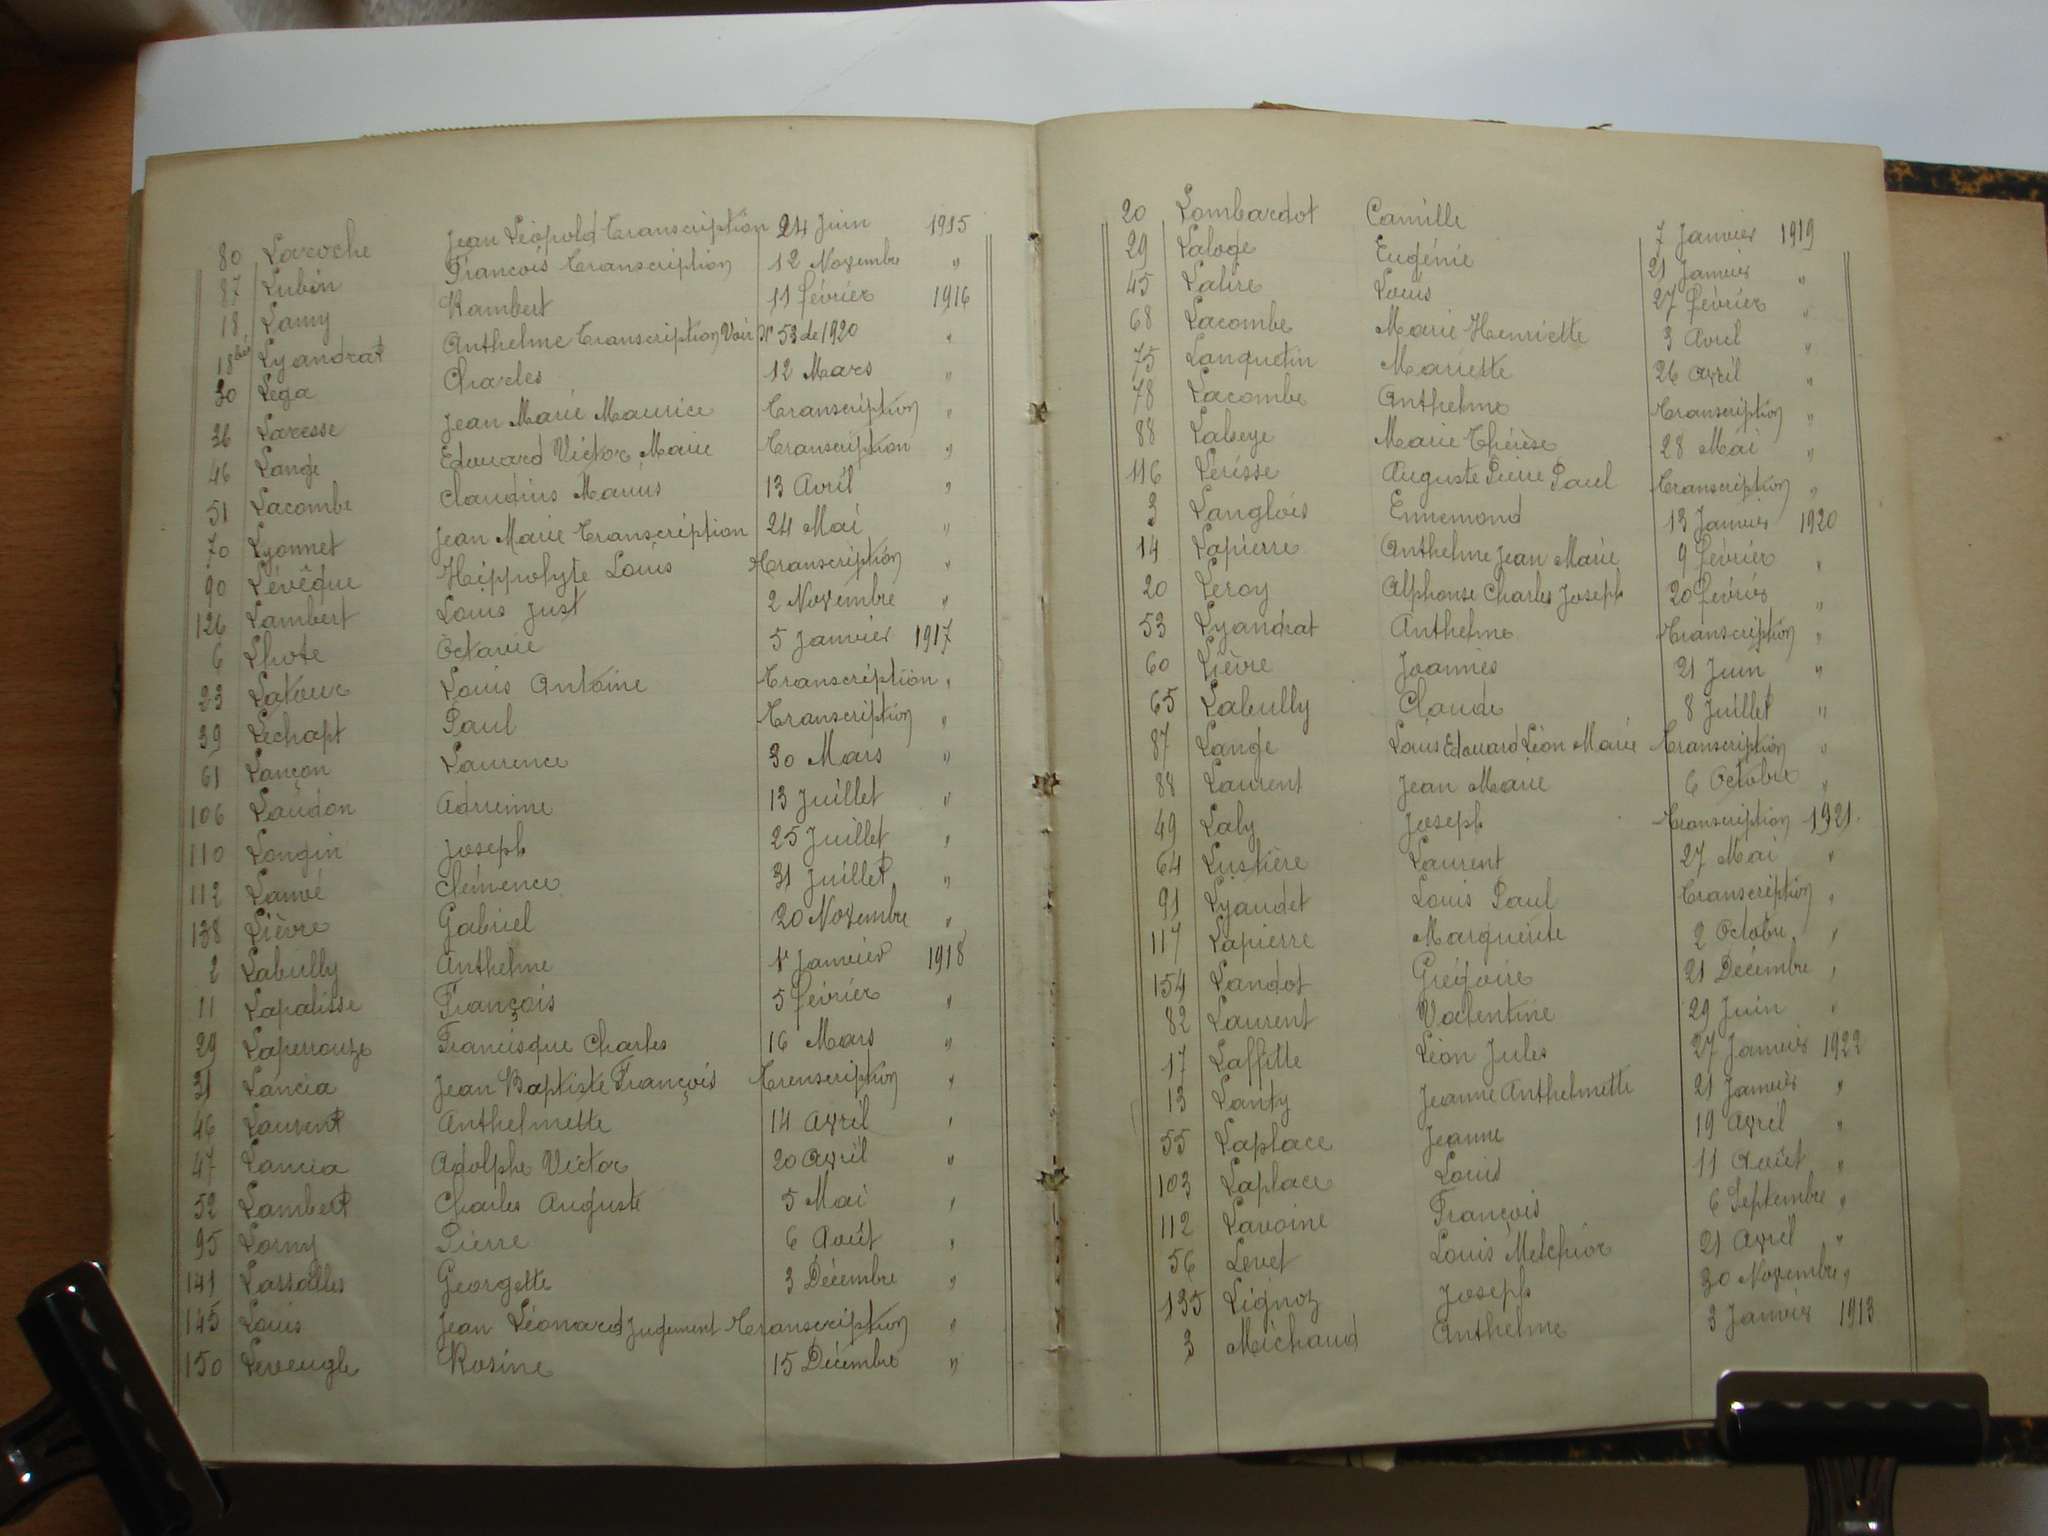 80 Laroche Jean Léopold Transcription 24 Juin 1915
87 Lubin François Transcription 12 Novembre "
18 Lamy Rambert 11 février 1916
18 bis Lyandrat Anthelme Transcription Voir N° 53 de 1920 "
30 Léga Charles 12 Mars "
36 Laresse Jean Marie Maurice Transcription "
46 Lange Edouard Victor Marie Transcription "
51 Lacombe Claudius Marius 13 Avril "
70 Lyonnet Jean Marie Transcription 24 Mai "
90 Lévêque Hippolyte Louis Transcription "
126 Lambert Louis Just 2 Novembre "
6 Lhote Octavie 5 Janvier 1917
23 Latour Louis Antoine Transcription "
39 Léchapt Paul Transcription "
61 Lançon Laurence 30 Mars "
106 Laudon Adrienne 13 Juillet "
110 Longin Joseph 25 Juillet "
112 Clémence 31 Juillet "
138 Lièvre Gabriel 20 Novembre "
2 Labully Anthelme 1r Janvier 1918
11 Lapalisse François 5 février "
29 Laperrouze Francisque Charles 16 Mars "
31 Lancia Jean Baptiste François Trenscription "
46 Laurent Anthelmette 14 Avril "
47 Lancia Adolphe Victor 20 Avril "
52 Lambert Charles Auguste 5 Mai "
95 Lorny Pierre 6 Août "
141 Lassalles Georgette 3 Décembre "
145 Louis Jean Léonard Jugement Transcription "
150 Leveugle Rosine 15 Décembre "
20 Lombardot Camille 7 Janvier 1919
29 Laloge Eugénie 21 Janvier "
45 Lalire Louis 27 février "
68 Lacombe Marie Henriette 3 Avril "
75 Lanquetin Mariette 26 Avril "
78 Lacombe Anthelme Transcription "
88 Marie Thérèse 28 Mai "
116 Lerisse Auguste Pierre Paul Transcription "
3 Langlois Ennemond 13 Janvier 1920
14 Lapierre Anthelme Jean Marie 9 février "
20 Leroy Alphonse Charles Joseph 20 février "
53 Lyandrat Anthelme Transcription "
60 Lièvre Joannès 21 Juin "
65 Labully Claude 8 Juillet "
87 Lange Louis Edouard Léon Marie Transcription "
88 Laurent Jean Marie 6 Octobre "
49 Laly Joseph Transcription 1921.
64 Lustière Laurent 27 Mai "
91 Lyaudet Louis Paul Transcription "
117 Lapierre Marguerite 2 Octobre "
154 Landot Grégoire 21 Décembre "
82 Laurent Valentine 29 Juin "
17 Laffitte Léon Jules 27 Janvier 1922
13 Lanty Jeanne Anthelmette 21 Janvier "
55 Laplace Jeanne 19 Avril "
103 Laplace Louis 11 Août "
112 Lavoine François 6 Septembre "
56 Levet Louis Melchior 21 Avril "
135 Lignoz Joseph 30 Novembre "
3 Michaud Anthelme 3 Janvier 1913